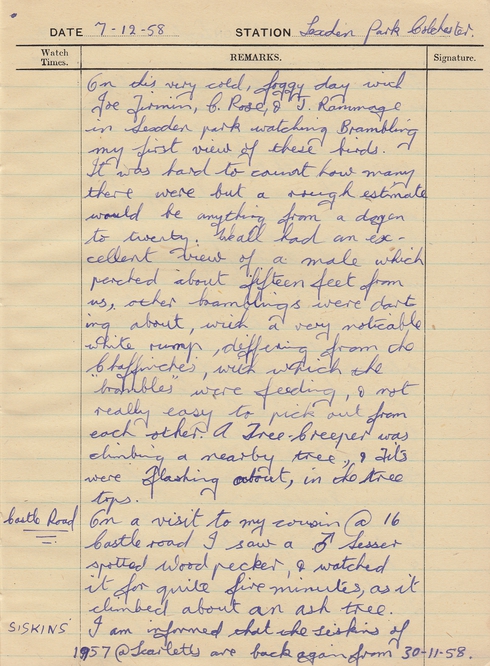 DATE 7-12-58 STATION Lexden Park Colchester.
Watch Times. REMARKS. Signature.
On this very cold, foggy day with
Joe Firmin, C. Rose, & J. Rammage
in Lexden park watching Brambling
my first view of these birds.
It was hard to count how many
there were but a rough estimate
would be anything from a dozen
to twenty. We all had an ex-
cellent view of a male which
perched about fifteen feet from
us, other bramblings were dart
ing about, with a very noticable
white rump, differing from the
Chaffinches, with which the
"brambles" were feeding, & not
really easy to pick out from
each other. A Tree-Creeper was
climbing a nearby tree, & Tits
were flashing about, in the tree
tops.
Castle Road On a visit to my cousin @ 16
Castle road I saw a ♂ Lesser
spotted Wood pecker, & watched
it for quite five minutes, as it
climbed about an ash tree.
SISKINS I am informed that the siskins of
1957 @ Scarletts are back again from 30-11-58.